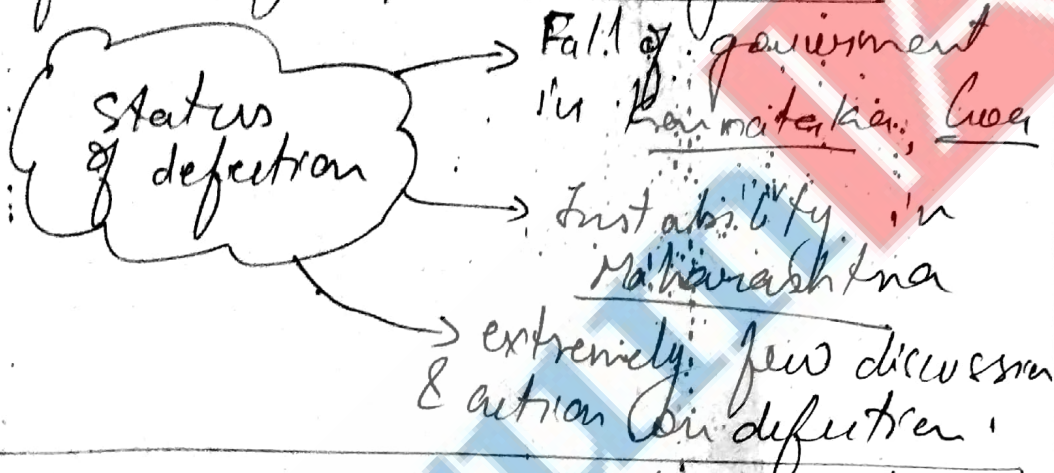 Status
of defection
Fall of government
in Karnataka, Goa
Instability in
Maharashtra
extremely few discussion
& action on defection.